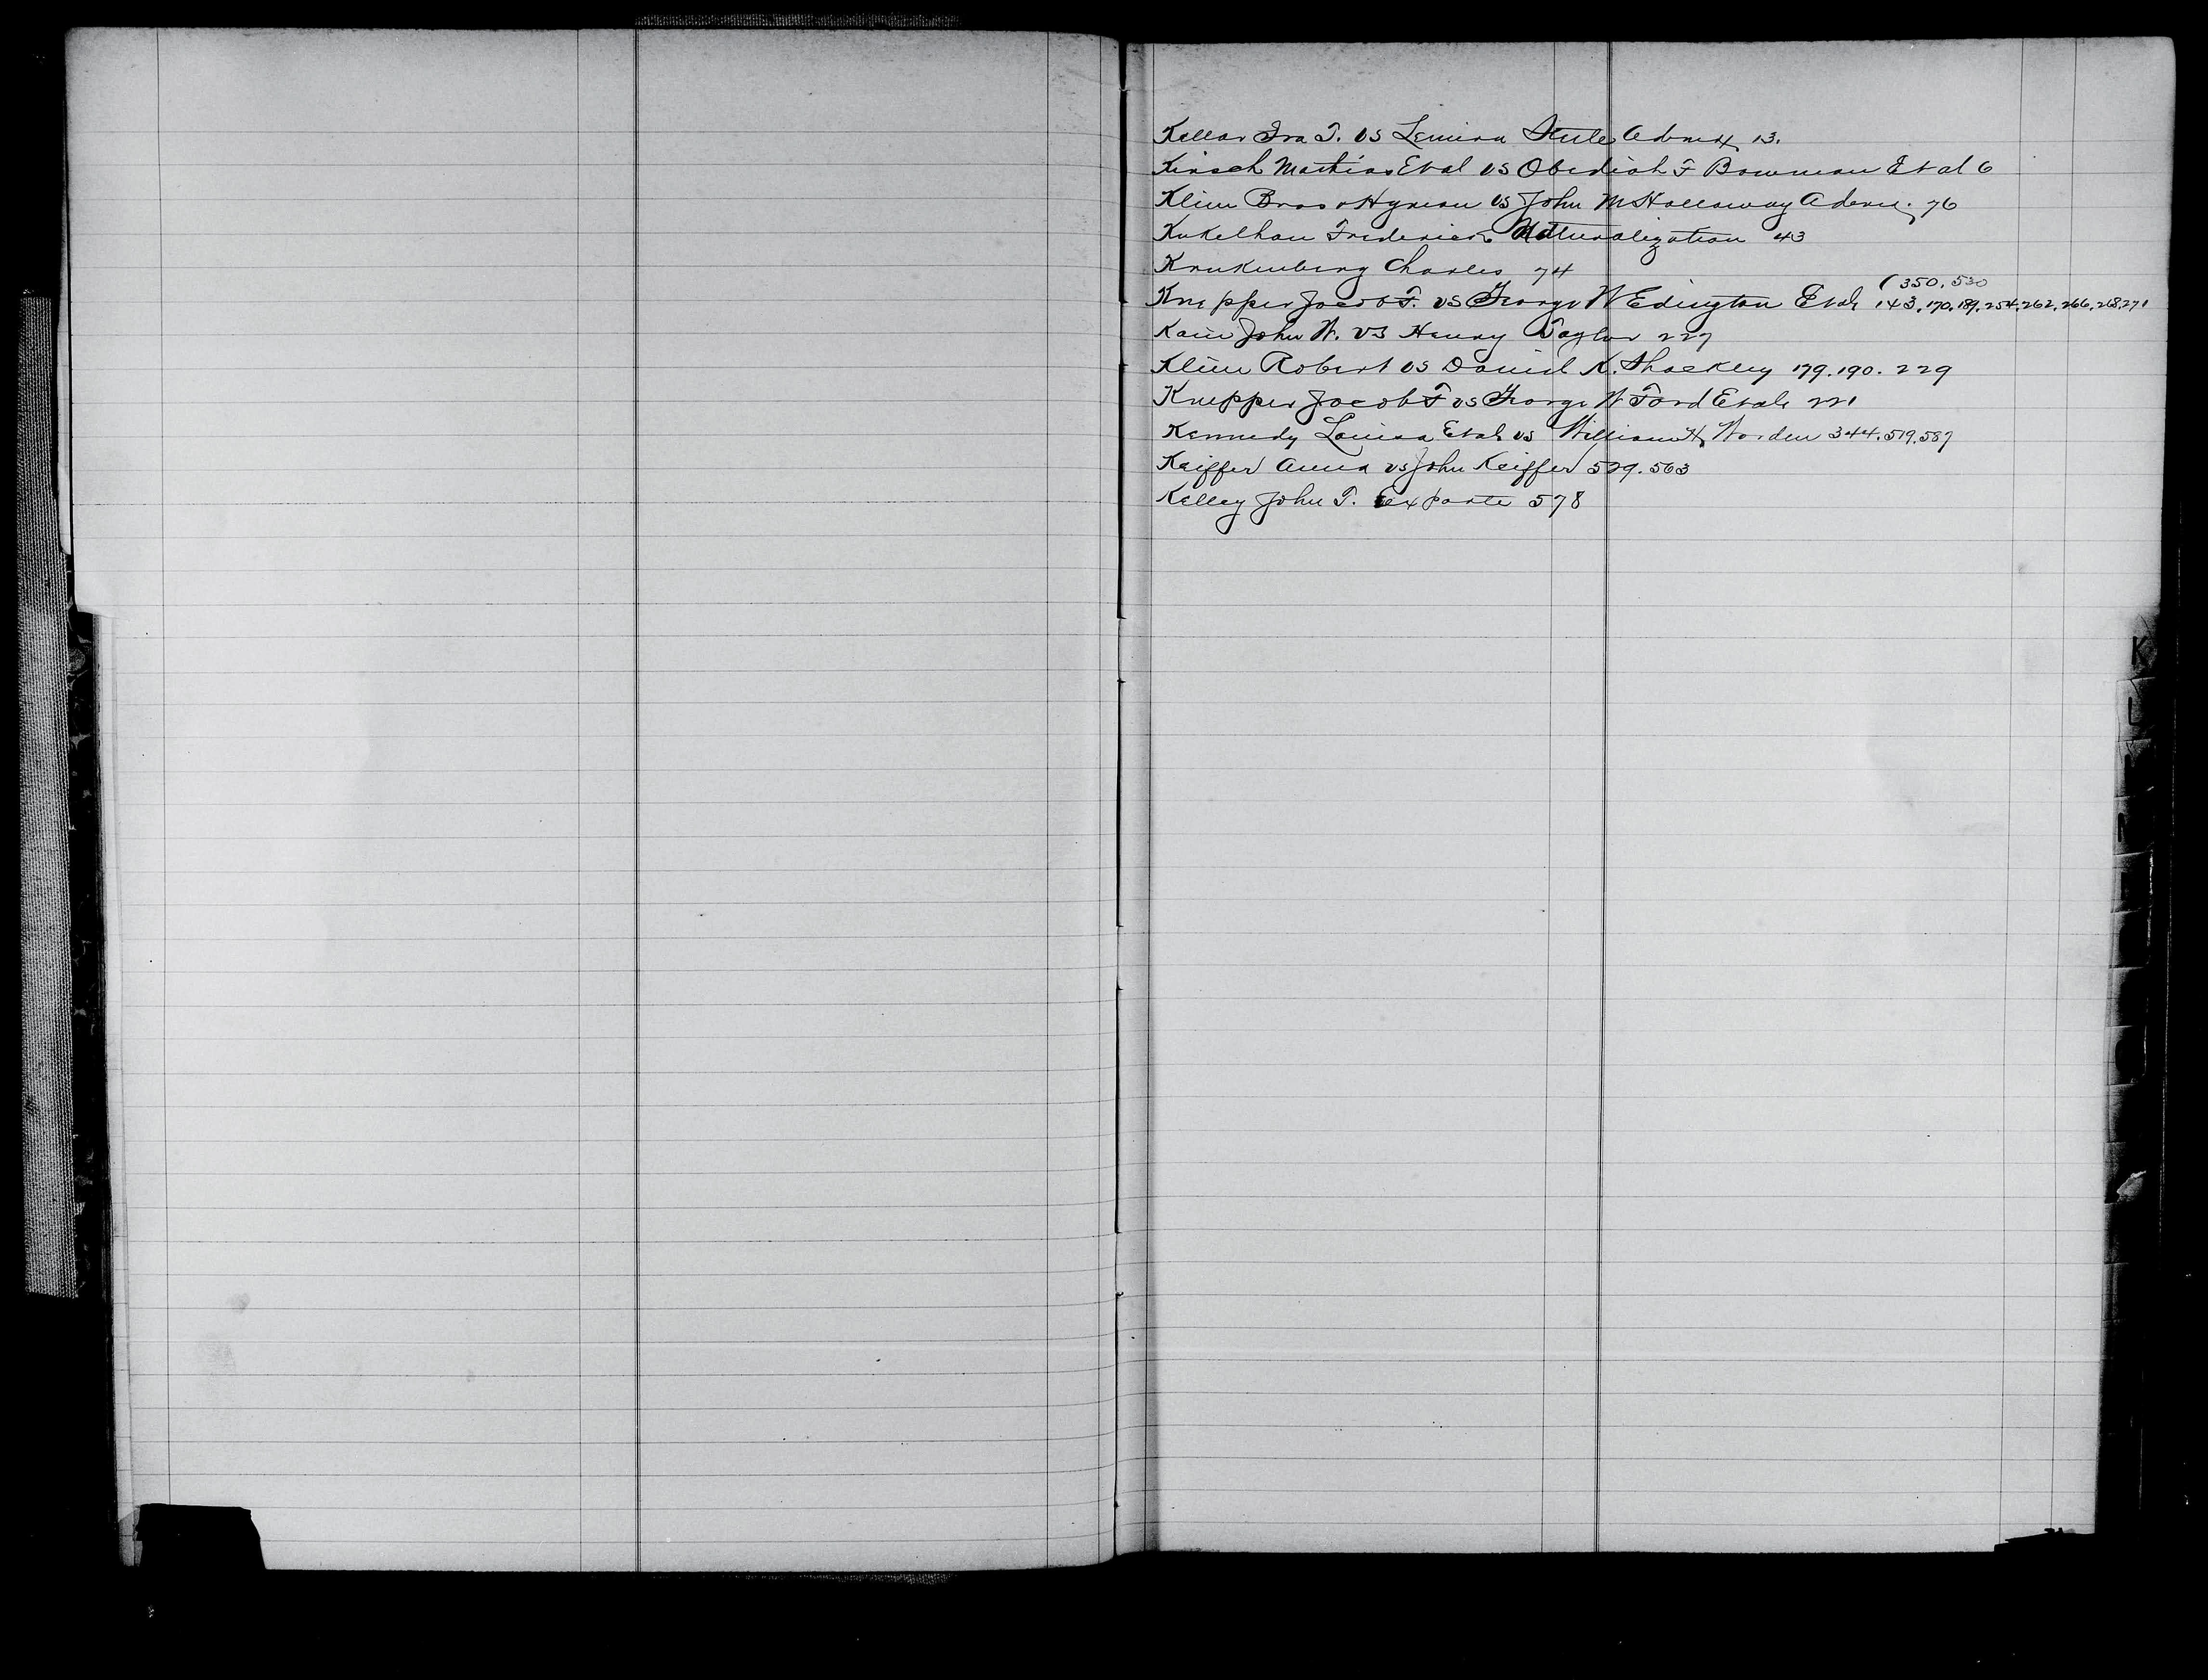 Kellar Ira T. vs Lemira Steele Admx 13.
Kirsch Mathias Etal vs Obediah F Bowman Etal 6
Kline Bros & Hyman vs John M Holloway Adm. 76
Kukelhan Frederick Naturalization 43
Krukenberg Charles 74
(350, 530
Knepper Jacob F. vs George W Edington Etal 143, 170, 189, 254, 262, 266, 268, 271
Kain John W. vs Henry Taylor 227
Kline Robert vs Daniel K. Shockley 179. 190. 229
Knepper Jacob F vs George W Ford Etal 221
Kennedy Louisa Etal vs William H Worden 344. 519. 587
Keiffer Anna vs John Keiffer 529. 563
Kelley John T. Ex parte 578
K
L